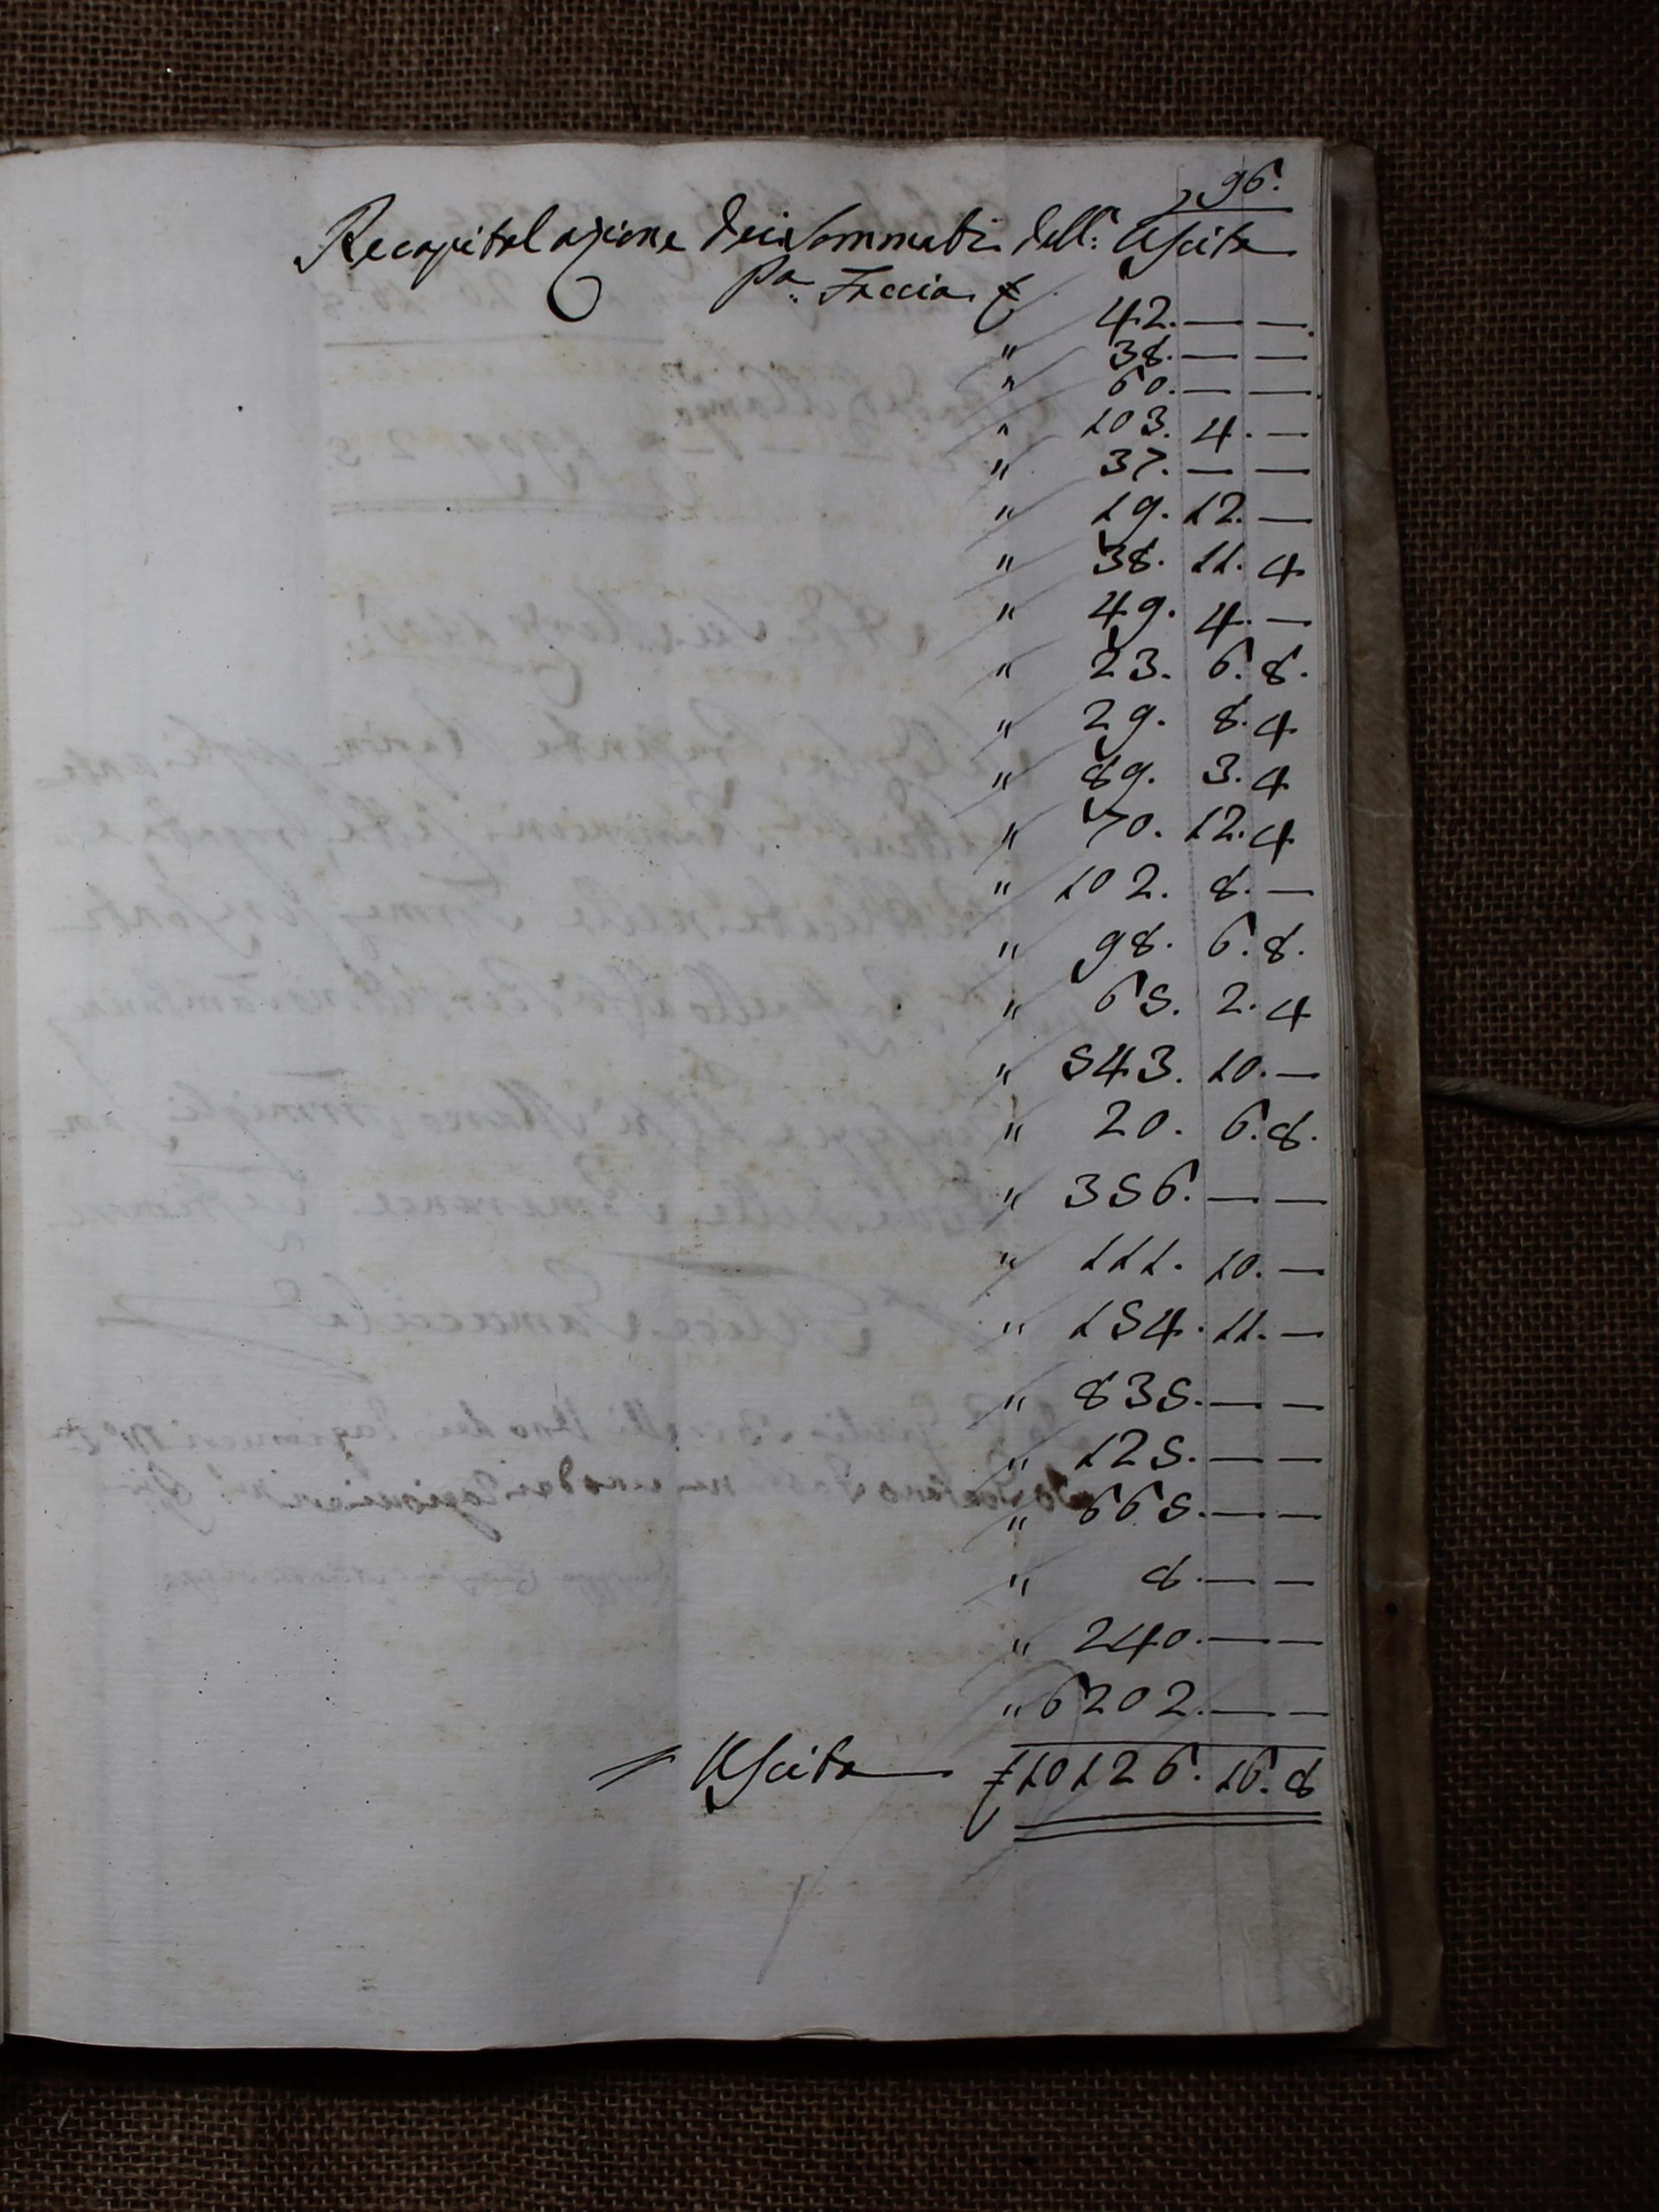 96.
Recapitolazione dei Sommati dell: Uscita
Pa. Faccia £ 42. — —
" 38. — —
" 60. — —
" 103. 4. —
" 37. — —
" 19. 12. —
" 38. 11. 4
" 49. 4. —
" 23. 6. 8.
" 29. 8. 4
" 89. 3. 4
" 70. 12. 4
" 102. 8. —
" 98. 6. 8.
" 65. 2. 4
" 543. 10. —
" 20. 6. 8.
" 356. — —
" 111. 10. —
" 154. 11. —
" 835. — —
" 125. — —
" 665. — —
" 8. — —
" 240. — —
" 6202. — —
Uscita — £ 10126. 16. 8